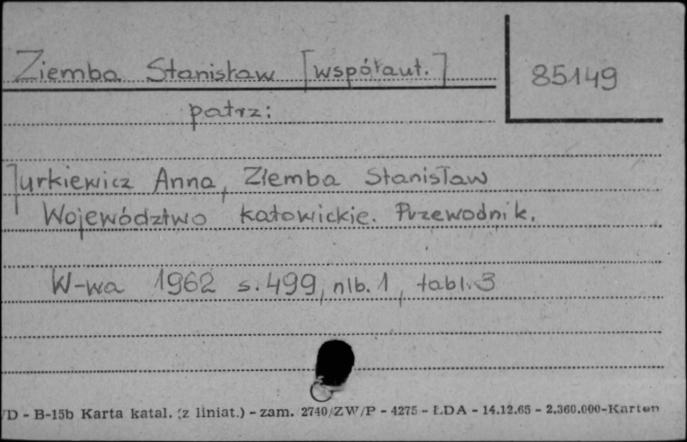 Ziemba Stanisław [współaut.]
85149
patrz:
Jurkiewicz Anna, Ziemba Stanisław
Województwo katowickie. Przewodnik.
W-wa 1962 s. 499, nlb. 1, tabl. 3
/D - B-15b Karta katal. (z liniat.) - zam. 2740/ZW/P - 4275 - ŁDA - 14.12.65 - 2.360.000-Karton